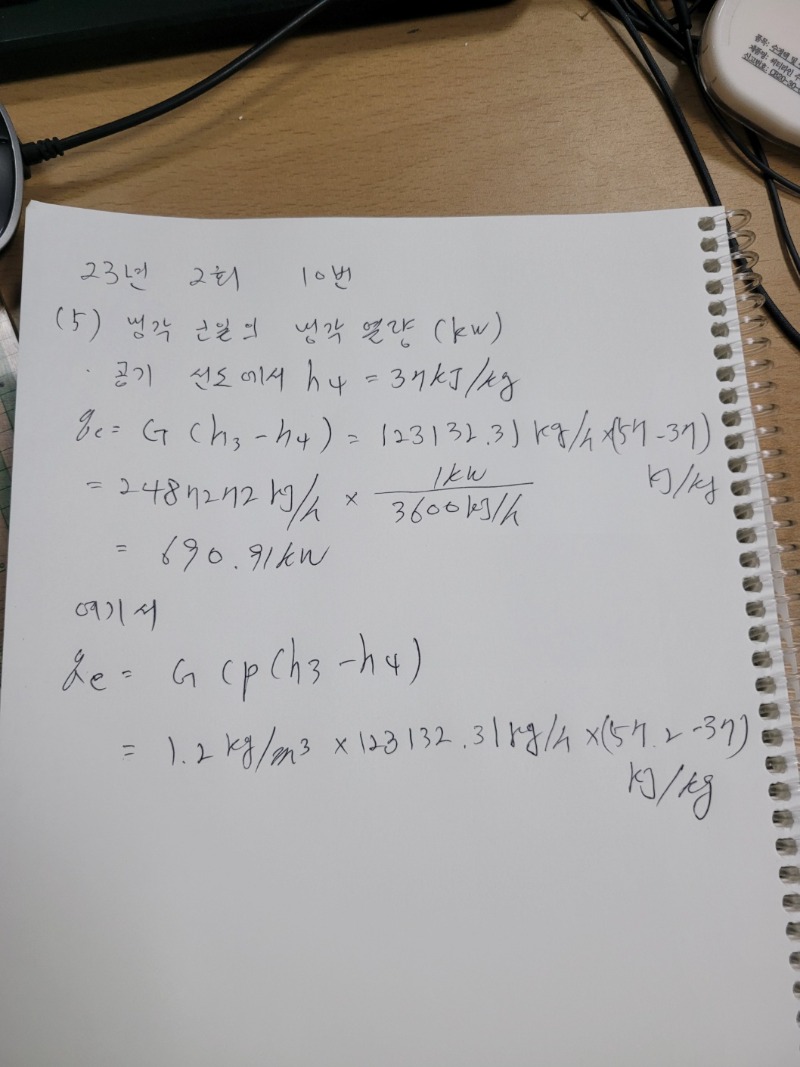 품목: 소형백 및 소
23년 2회 10번
(5) 냉각 코일의 냉각 열량 (kw)
· 공기 선도에서 h4 = 37kJ/kg
qc = G (h3 - h4) = 123132.31 kg/h × (57 - 37)
kJ/kg
= 2487272 kJ/h × 1kw / 3600kJ/h
= 690.91kW
여기서
qe = G Cp (h3 - h4)
= 1.2 kg/m³ × 123132.31 kg/h × (57.2 - 37)
kJ/kg